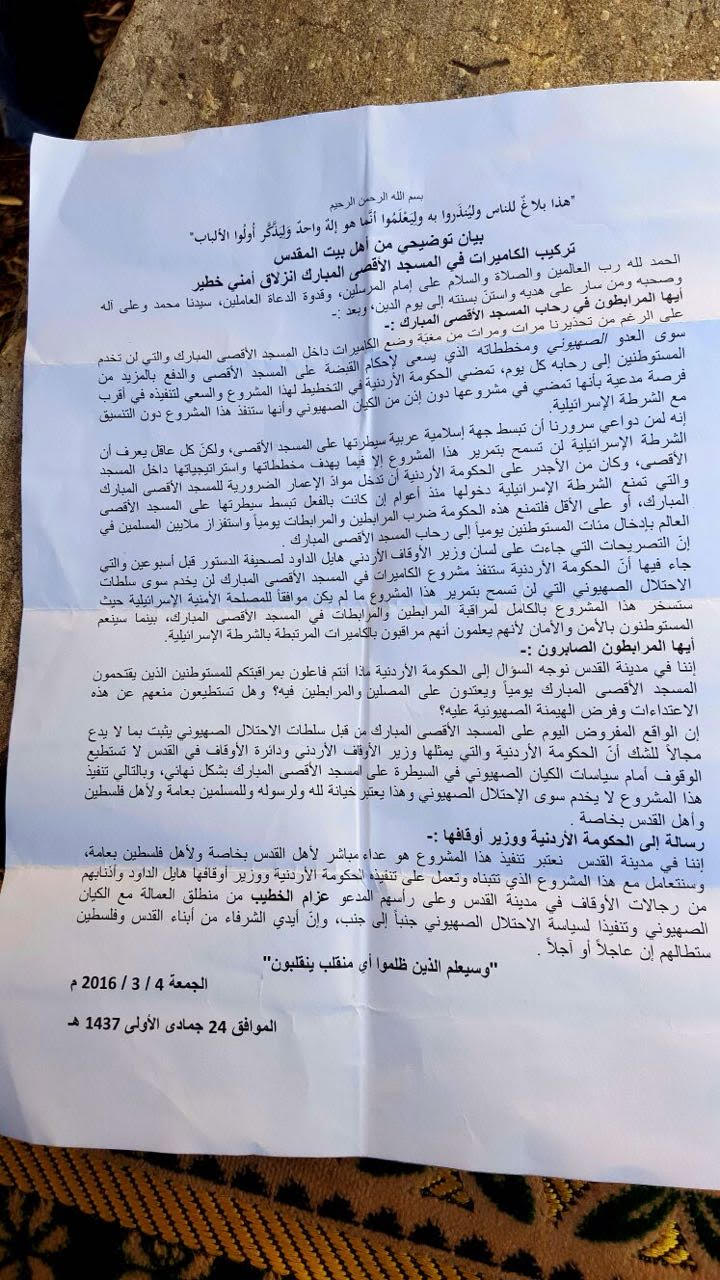 بسم الله الرحمن الرحيم
"هذا بلاغٌ للناس وليُنذَروا به وليَعْلَمُوا أنَّما هو إلهٌ واحدٌ وَليَذَّكَّر أولُوا الألباب"
بيان توضيحي من أهل بيت المقدس
تركيب الكاميرات في المسجد الأقصى المبارك انزلاق أمني خطير
الحمد لله رب العالمين والصلاة والسلام على إمام المرسلين، وقدوة الدعاة العاملين، سيدنا محمد وعلى آله
وصحبه ومن سار على هديه واستنّ بسنته إلى يوم الدين، وبعد :-
أيها المرابطون في رحاب المسجد الأقصى المبارك :-
على الرغم من تحذيرنا مرات ومرات من مغبّة وضع الكاميرات داخل المسجد الأقصى المبارك والتي لن تخدم
سوى العدو الصهيوني ومخططاته الذي يسعى لإحكام القبضة على المسجد الأقصى والدفع بالمزيد من
المستوطنين إلى رحابه كل يوم، تمضي الحكومة الأردنية في التخطيط لهذا المشروع والسعي لتنفيذه في أقرب
فرصة مدعية بأنها تمضي في مشروعها دون إذن من الكيان الصهيوني وأنها ستنفذ هذا المشروع دون التنسيق
مع الشرطة الإسرائيلية.
إنه لمن دواعي سرورنا أن تبسط جهة إسلامية عربية سيطرتها على المسجد الأقصى، ولكنّ كل عاقل يعرف أن
الشرطة الإسرائيلية لن تسمح بتمرير هذا المشروع إلا فيما يهدف مخططاتها واستراتيجياتها داخل المسجد
الأقصى، وكان من الأجدر على الحكومة الأردنية أن تدخل موادّ الإعمار الضرورية للمسجد الأقصى المبارك
والتي تمنع الشرطة الإسرائيلية دخولها منذ أعوام إن كانت بالفعل تبسط سيطرتها على المسجد الأقصى
المبارك، أو على الأقل فلتمنع هذه الحكومة ضرب المرابطين والمرابطات يومياً واستفزاز ملايين المسلمين في
العالم بإدخال مئات المستوطنين يومياً إلى رحاب المسجد الأقصى المبارك .
إنّ التصريحات التي جاءت على لسان وزير الأوقاف الأردني هايل الداود لصحيفة الدستور قبل أسبوعين والتي
جاء فيها أنّ الحكومة الأردنية ستنفذ مشروع الكاميرات في المسجد الأقصى المبارك لن يخدم سوى سلطات
الاحتلال الصهيوني التي لن تسمح بتمرير هذا المشروع ما لم يكن موافقاً للمصلحة الأمنية الإسرائيلية حيث
ستسخر هذا المشروع بالكامل لمراقبة المرابطين والمرابطات في المسجد الأقصى المبارك، بينما سينعم
المستوطنون بالأمن والأمان لأنهم يعلمون أنهم مراقبون بالكاميرات المرتبطة بالشرطة الإسرائيلية.
أيها المرابطون الصابرون :-
إننا في مدينة القدس نوجه السؤال إلى الحكومة الأردنية ماذا أنتم فاعلون بمراقبتكم للمستوطنين الذين يقتحمون
المسجد الأقصى المبارك يومياً ويعتدون على المصلين والمرابطين فيه؟ وهل تستطيعون منعهم عن هذه
الاعتداءات وفرض الهيمنة الصهيونية عليه؟
إن الواقع المفروض اليوم على المسجد الأقصى المبارك من قبل سلطات الاحتلال الصهيوني يثبت بما لا يدع
مجالاً للشك أنّ الحكومة الأردنية والتي يمثلها وزير الأوقاف الأردني ودائرة الأوقاف في القدس لا تستطيع
الوقوف أمام سياسات الكيان الصهيوني في السيطرة على المسجد الأقصى المبارك بشكل نهائي، وبالتالي تنفيذ
هذا المشروع لا يخدم سوى الإحتلال الصهيوني وهذا يعتبر خيانة لله ولرسوله وللمسلمين بعامة ولأهل فلسطين
وأهل القدس بخاصة .
رسالة إلى الحكومة الأردنية ووزير أوقافها :-
إننا في مدينة القدس نعتبر تنفيذ هذا المشروع هو عداء مباشر لأهل القدس بخاصة ولأهل فلسطين بعامة،
وسنتعامل مع هذا المشروع الذي تتبناه وتعمل على تنفيذه الحكومة الأردنية ووزير أوقافها هايل الداود وأذنابهم
من رجالات الأوقاف في مدينة القدس وعلى رأسهم المدعو عزام الخطيب من منطلق العمالة مع الكيان
الصهيوني وتنفيذا لسياسة الاحتلال الصهيوني جنباً إلى جنب، وإنّ أيدي الشرفاء من أبناء القدس وفلسطين
ستطالهم إن عاجلاً أو آجلاً .
"وسيعلم الذين ظلموا أي منقلب ينقلبون"
الجمعة 4 / 3 / 2016 م
الموافق 24 جمادى الأولى 1437 هـ